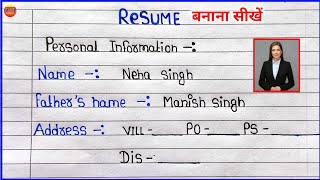 RESUME बनाना सीखें
Personal Information -:
Name -: Neha singh
Father's name -: Manish singh
Address -: VILL-______ PO-______ PS-______
Dis-:______